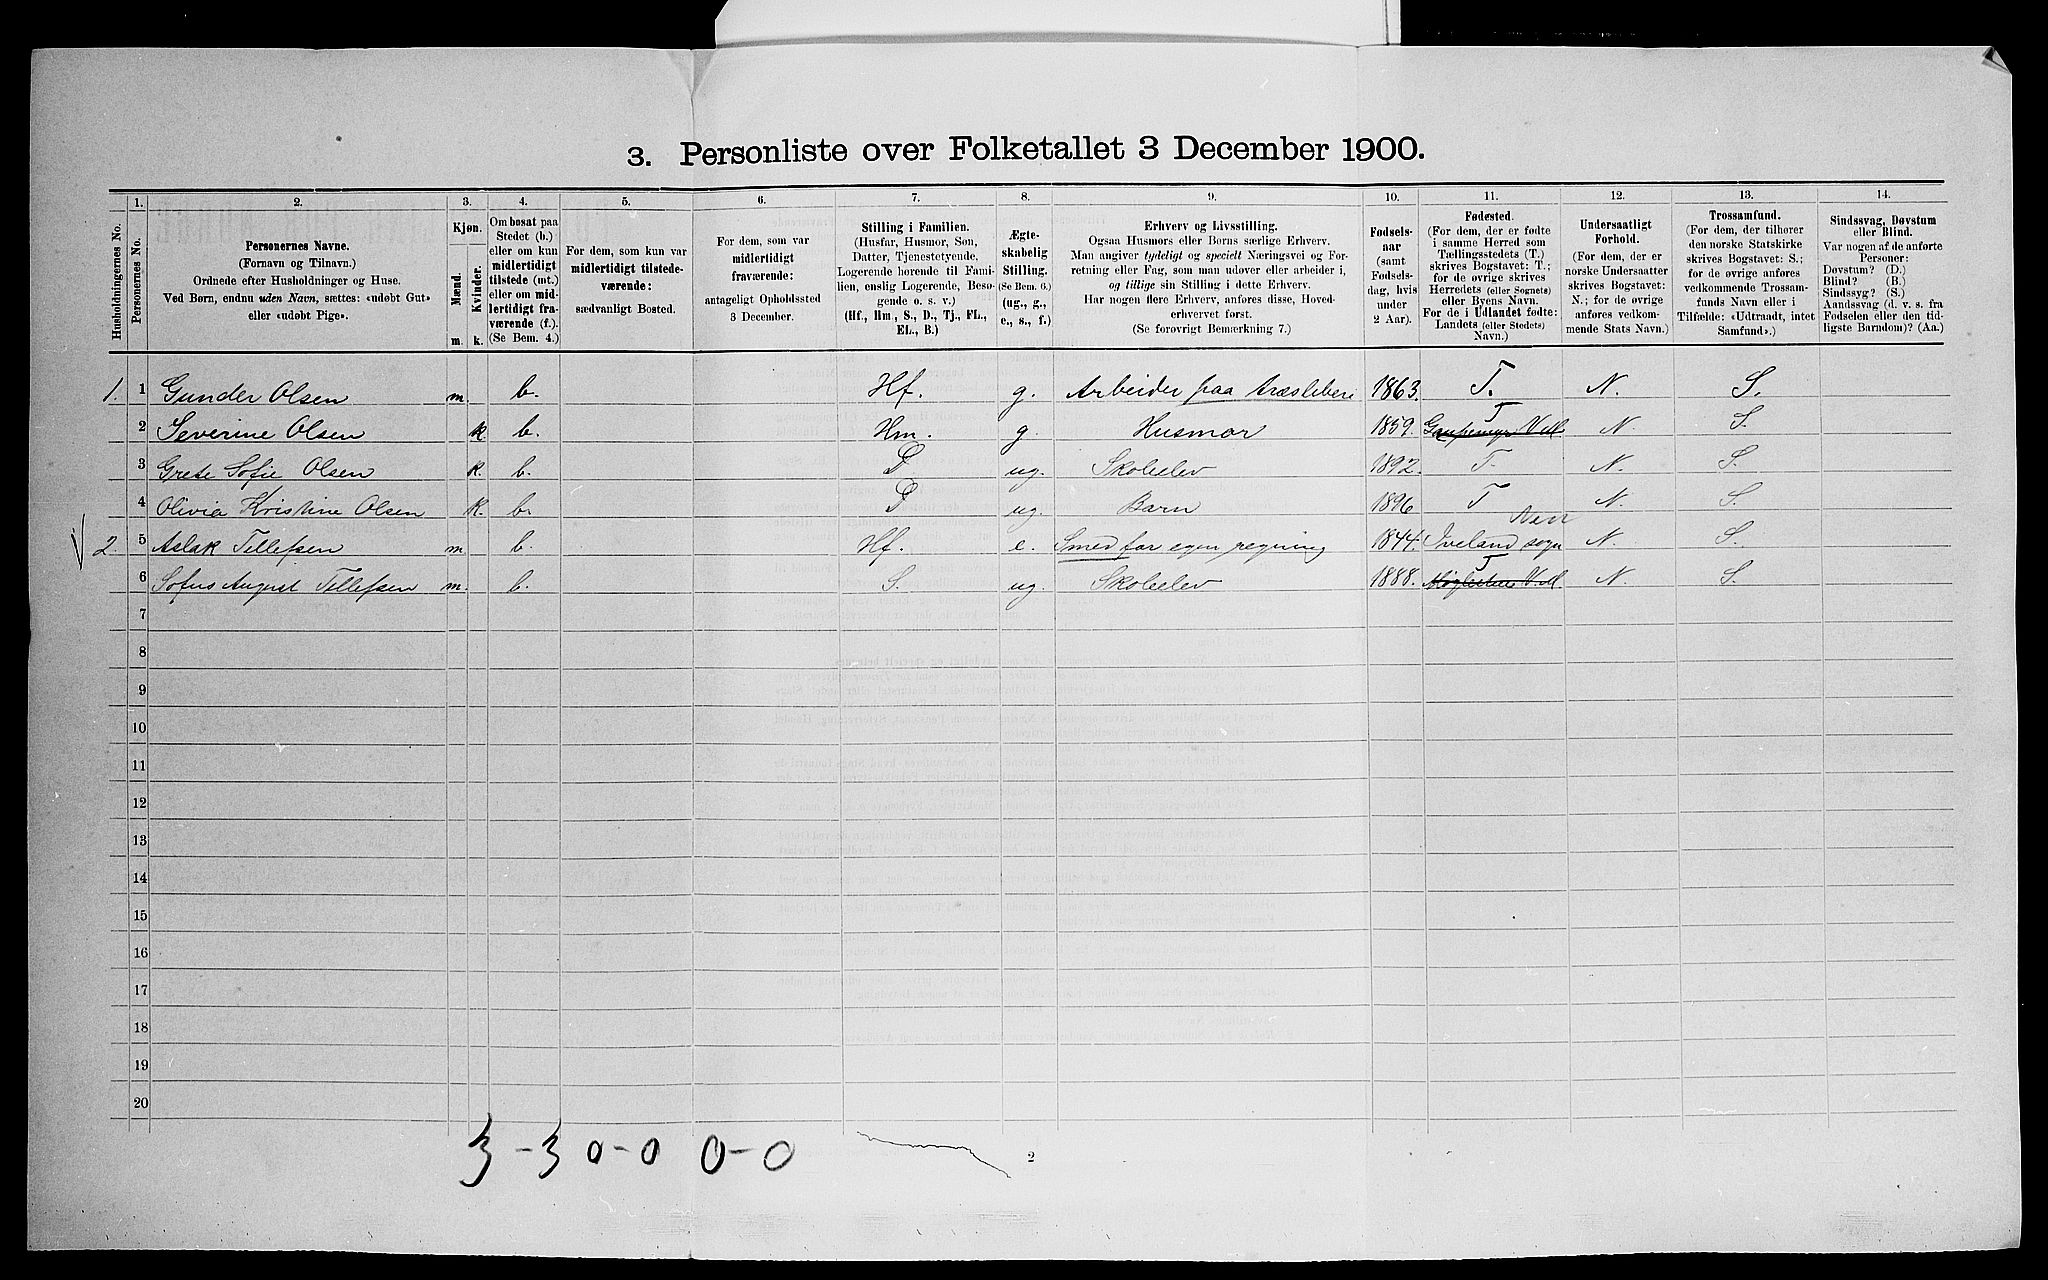 3. Personliste over Folketallet 3 December 1900.
Husholdningernes No.
1.
Personernes No.
2.
Personernes Navne.
(Fornavn og Tilnavn.)
Ordnede efter Husholdninger og Huse.
Ved Børn, endnu uden Navn, sættes: «udøbt Gut»
eller «udøbt Pige».
3.
Kjøn.
Mænd.
Kvinder.
m. k.
4.
Om bosat paa
Stedet (b.)
eller om kun
midlertidigt
tilstede (mt.)
eller om mid-
lertidigt fra-
værende (f.).
(Se Bem. 4.)
5.
For dem, som kun var
midlertidigt tilstede-
værende:
sædvanligt Bosted.
6.
For dem, som var
midlertidigt
fraværende:
antageligt Opholdssted
3 December.
7.
Stilling i Familien.
(Husfar, Husmor, Søn,
Datter, Tjenestetyende,
Logerende hørende til Fami-
lien, enslig Logerende, Besø-
gende o. s. v.)
(Hf., Hm., S., D., Tj., FL.,
EL., B.)
8.
Ægte-
skabelig
Stilling.
(Se Bem. 6.)
(ug., g.,
e., s., f.)
9.
Erhverv og Livsstilling.
Ogsaa Husmors eller Børns særlige Erhverv.
Man angiver tydeligt og specielt Næringsvei og For-
retning eller Fag, som man udøver eller arbeider i,
og tillige sin Stilling i dette Erhverv.
Har nogen flere Erhverv, anføres disse, Hoved-
erhvervet først.
(Se forøvrigt Bemærkning 7.)
10.
Fødsels-
aar
(samt
Fødsels-
dag, hvis
under
2 Aar).
11.
Fødested.
(For dem, der er fødte
i samme Herred som
Tællingsstedets (T.)
skrives Bogstavet: T.;
for de øvrige skrives
Herredets (eller Sognets)
eller Byens Navn.
For de i Udlandet fødte:
Landets (eller Stedets)
Navn.)
12.
Undersaatligt
Forhold.
(For dem, der er
norske Undersaatter
skrives Bogstavet:
N.; for de øvrige
anføres vedkom-
mende Stats Navn.)
13.
Trossamfund.
(For dem, der tilhører
den norske Statskirke
skrives Bogstavet: S.;
for de øvrige anføres
vedkommende Trossam-
funds Navn eller i
Tilfælde: «Udtraadt, intet
Samfund».)
14.
Sindssvag, Døvstum
eller Blind.
Var nogen af de anførte
Personer:
Døvstum? (D.)
Blind? (B.)
Sindssyg? (S.)
Aandssvag (d. v. s. fra
Fødselen eller den tid-
ligste Barndom)? (Aa.)
1. 1 Gunder Olsen m. b. Hf. g. Arbeider paa træsliberi 1863. T. N. S.
2 Severine Olsen k. b. Hm. g. Husmor 1859. T N. S.
3 Grete Sofie Olsen k. b. D ug. Skoleelev 1892. T. N. S.
4 Olivia Kristine Olsen k. b. D ug. Barn 1896 T N. S.
2. 5 Aslak Tellefsen m. b. Hf. e. Smed for egen regning 1844. Iveland sogn N. S.
6 Sofus August Tellefsen m. b. S. ug. Skoleelev 1888. T N. S.
7
8
9
10
11
12
13
14
15
16
17
18
19
20
3-3 0-0 0-0
2